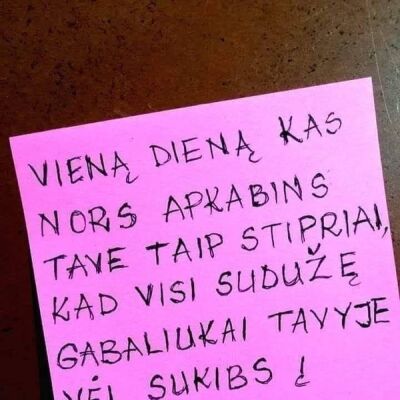 VIENĄ DIENĄ KAS
NORS APKABINS
TAVE TAIP STIPRIAI,
KAD VISI SUDUŽĘ
GABALIUKAI TAVYJE
VĖL SUKIBS !